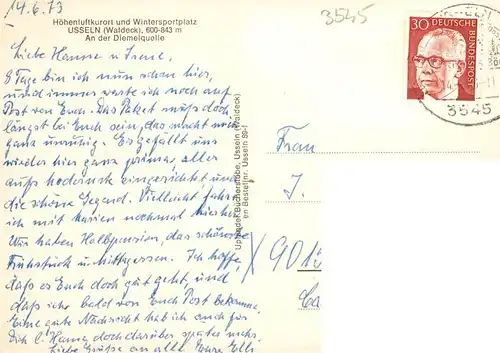 14.6.73
3545
Höhenluftkurort und Wintersportplatz
USSELN (Waldeck), 600-843 m
An der Diemelquelle
Liebe Hanne u. Irene,
8 Tage bin ich nun schon hier,
und immer warte ich noch auf
Post von Euch. Das Paket muß doch
längst bei Euch sein, das macht mich
ganz unruhig. Es gefällt uns
wieder hier ganz prima, alles
aufs modernste eingerichtet und
die schöne Gegend. Vielleicht fahre
ich mit nochmal hierher
Wir haben Halbpension, das schönste
Frühstück u. Mittagessen. Ich hoffe,
daß es Euch doch gut geht, und
daß ich bald von Euch Post bekomme.
Eine gute Nachricht hab ich auch für
Dich l. Hanne doch darüber später mehr.
Liebe Grüße an all. Eure Elli
Bücherstube, Usseln (Waldeck)
Bestellnr. Usseln 89-1
30 DEUTSCHE
BUNDESPOST
3545
Frau
J.